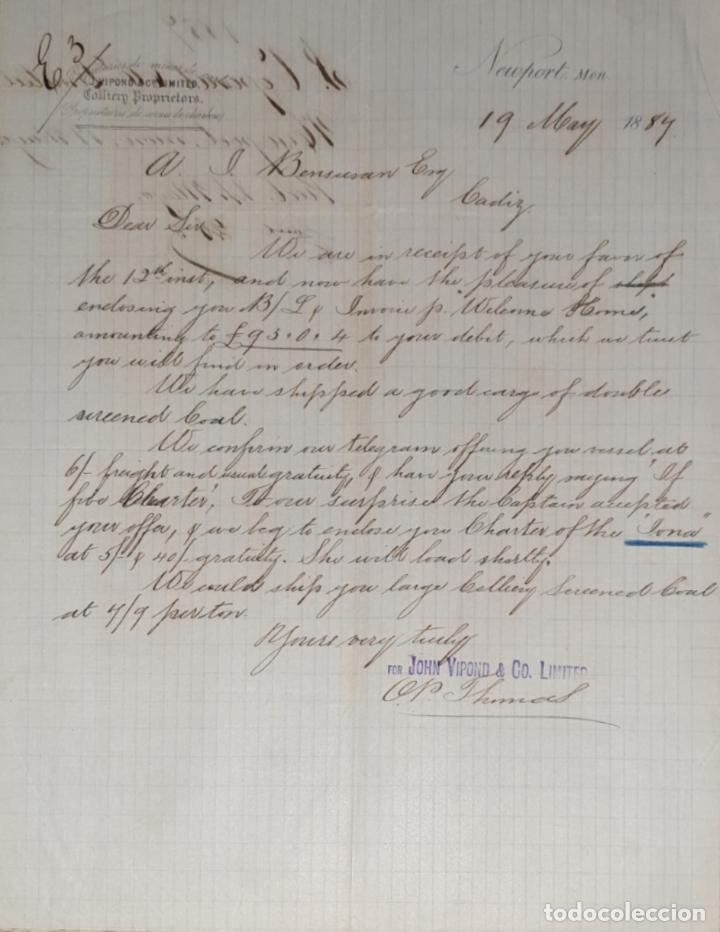 E 3
VIPOND & Co LIMITED.
Colliery Proprietors.
Newport, Mon.
19 May 1889
A. J. Bensusan Esq
Cadiz
Dear Sir
We are in receipt of your favor of
the 12th inst, and now have the pleasure of
enclosing you B/L & Invoice p. "Welcome Home",
amounting to £93.0.4 to your debit, which we trust
you will find in order.
We have shipped a good cargo of double
screened Coal.
We confirm our telegram offering you vessel at
6/- freight and usual gratuity, & have your reply saying "If
five Charter", To our surprise the Captain accepted
your offer, & we beg to enclose you Charter of the "Iona"
at 5/- & 40/- gratuity. She will load shortly.
We could ship you large Colliery Screened Coal
at 7/9 per ton.
Yours very truly
FOR JOHN VIPOND & CO. LIMITED
Thomas
todocoleccion